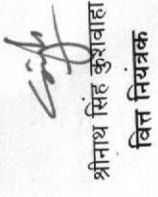 श्रीनाथ सिंह कुशवाहा
वित्त नियंत्रक